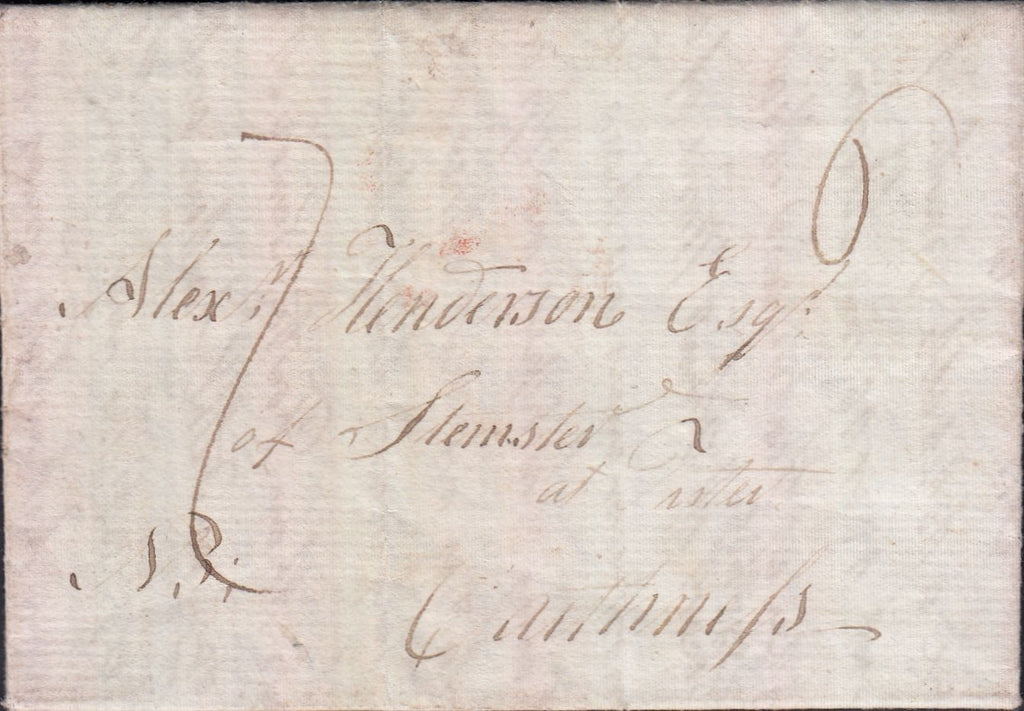 Alexr. Henderson Esqr.
of Stemster
at
N.B.
Caithness